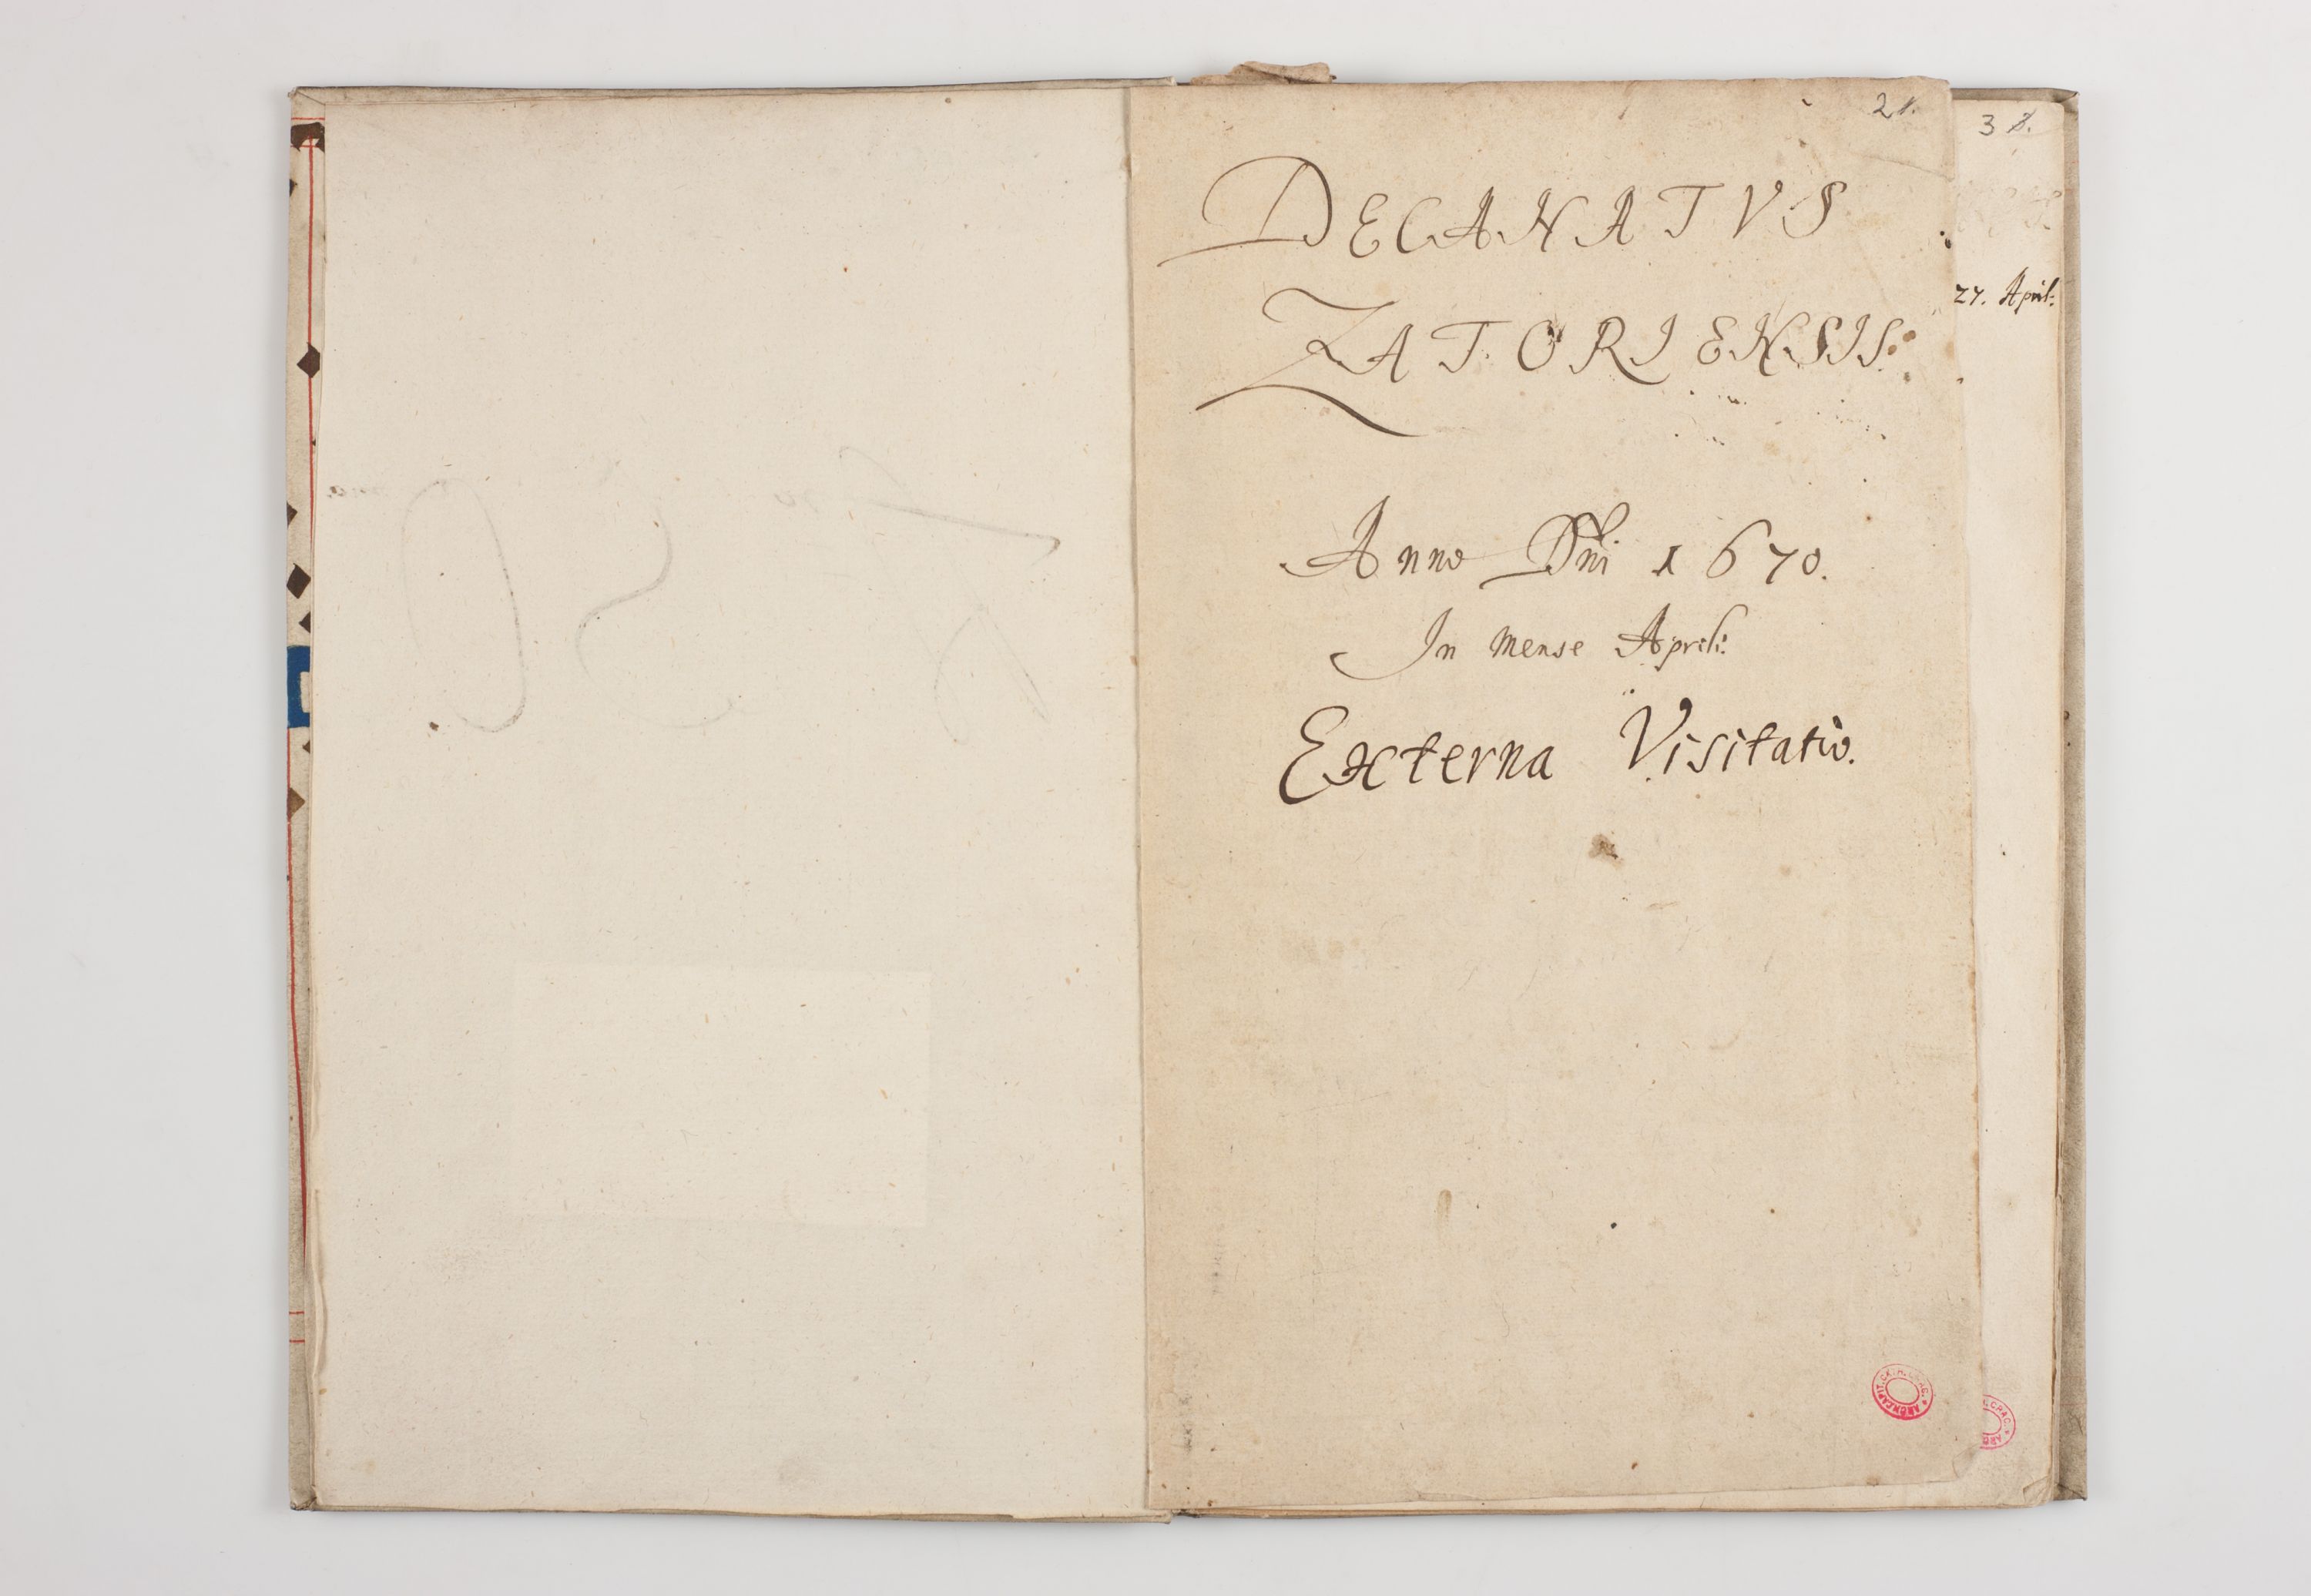 2 1.
DECANATVS
ZATORIENSIS.
Anno Dni 1670.
In Mense Aprili:
Externa Visitatio.
3 2.
27. April: